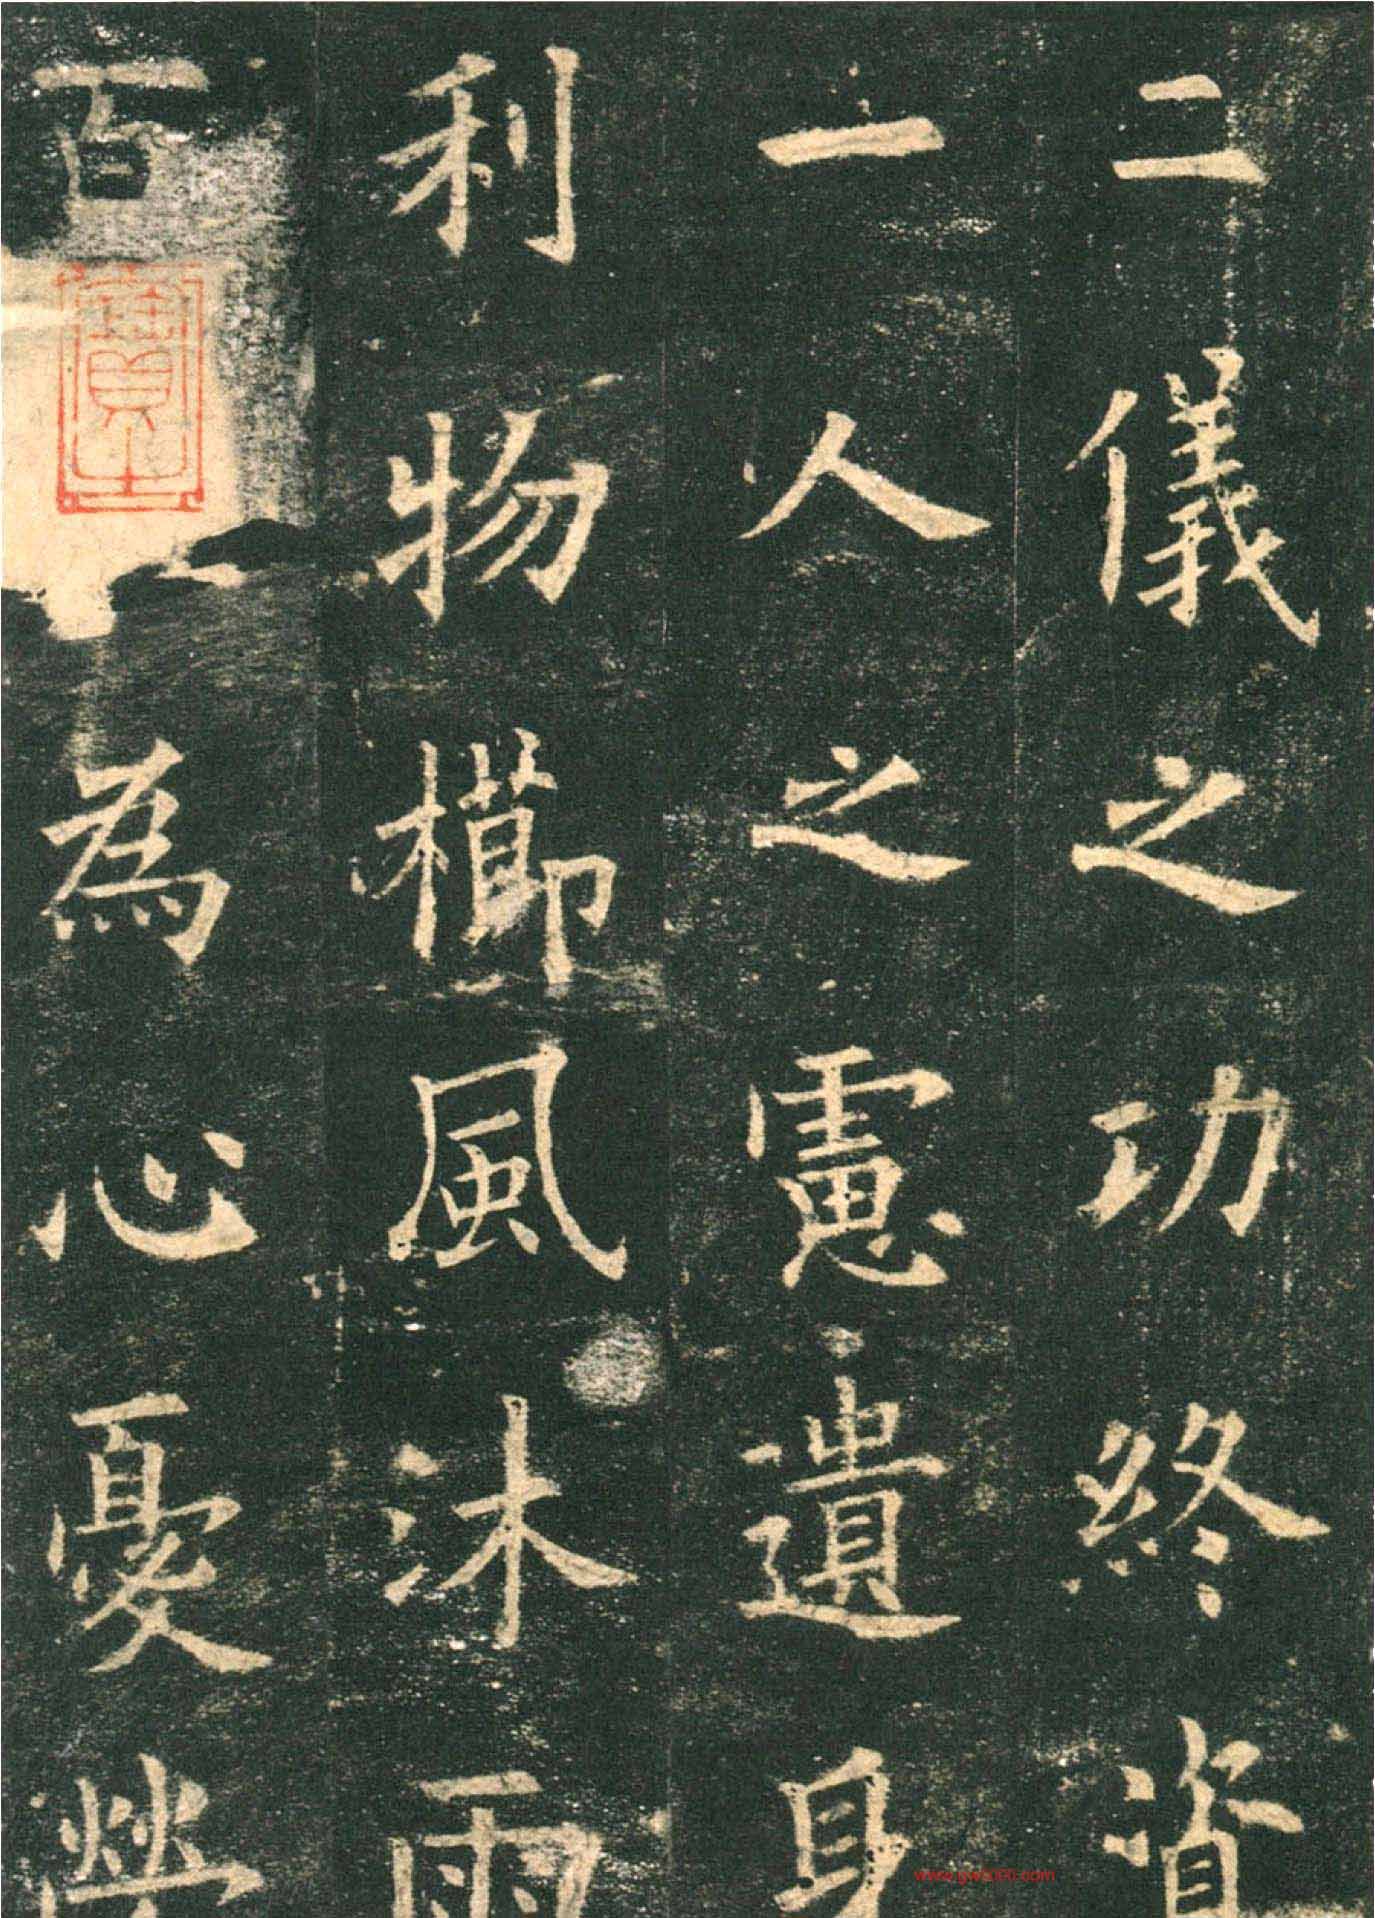 二儀之功終資
一人之慮遺身
利物櫛風沐雨
百為心憂勞
www.gw8090.com